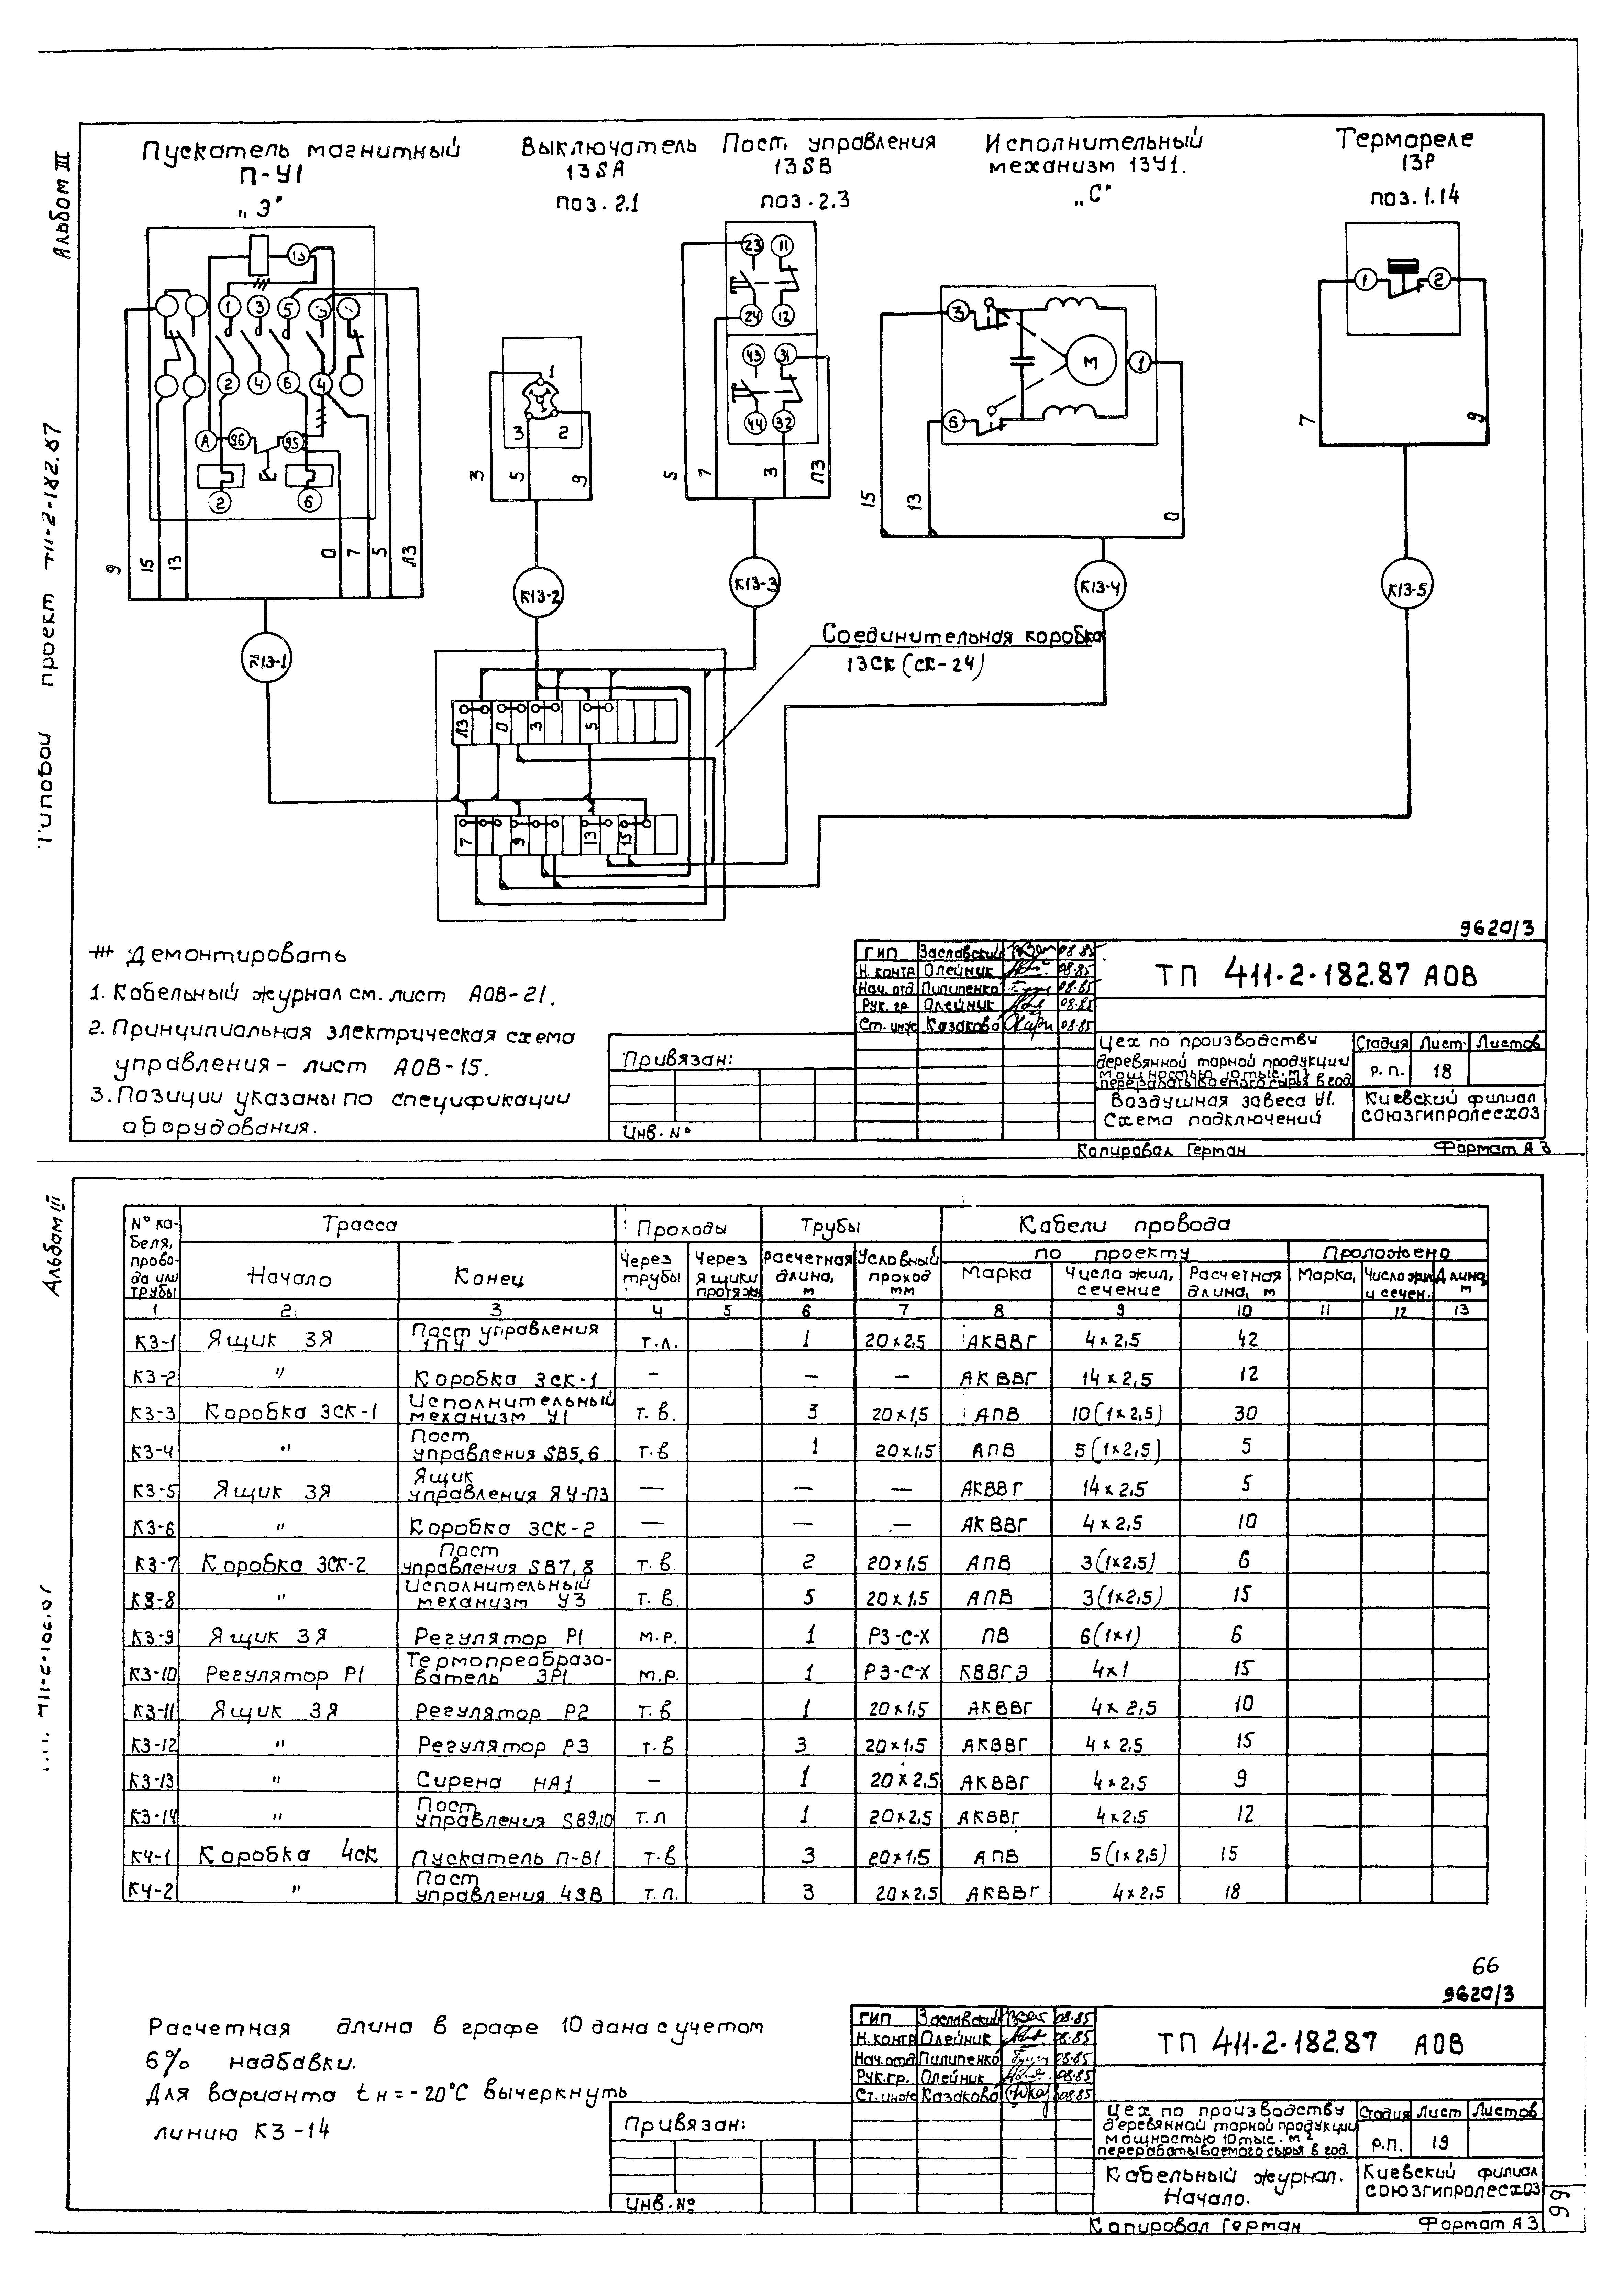 Альбом III
Типовой проект 411-2-182.87
Пускатель магнитный
П-У1
„Э"
Выключатель
13SA
поз. 2.1
Пост управления
13SB
поз. 2.3
Исполнительный
механизм 13У1.
„С"
Термореле
13Р
поз. 1.14
13
1 3 5
2 4 6 4
А 96 95
2 6
9 15 13 0 7 5 Л3
1
3 2
3 5 9
23 11
24 12
43 31
44 32
5 7 3 Л3
3 М 1
6
15 13 0
1 2
7 9
К13-1
К13-2
К13-3
К13-4
К13-5
Соединительная коробка
13СК (СК-24)
Л3 0 3 5
7 9 13 15
Демонтировать
1. Кабельный журнал см. лист АОВ-21.
2. Принципиальная электрическая схема
управления - лист АОВ-15.
3. Позиции указаны по спецификации
оборудования.
9620/3
ГИП Заславский 08.85
Н. контр Олейник 08.85
Нач. отд Пилипенко 08.85
Рук. гр Олейник 08.85
Ст. инж Казакова 08.85
ТП 411-2-182.87 АОВ
Привязан:
Инв. №
Цех по производству
деревянной тарной продукции
мощностью 10 тыс. м³
перерабатываемого сырья в год
Стадия Лист Листов
Р.П. 18
Воздушная завеса У1.
Схема подключений
Киевский филиал
СОЮЗГИПРОЛЕСХОЗ
Копировал Герман Формат А3
Альбом III
№ кабеля, провода или трубы Трасса Проходы Трубы Кабели провода
по проекту Проложено
Начало Конец Через трубы Через ящики протяжн Расчетная длина, м Условный проход мм Марка Число жил, сечение Расчетная длина, м Марка, Число жил и сечен. Длина, м
1 2 3 4 5 6 7 8 9 10 11 12 13
К3-1 Ящик 3Я Пост управления 1ПУ т.л. 1 20×2,5 АКВВГ 4×2,5 42
К3-2 " Коробка 3СК-1 — — — АКВВГ 14×2,5 12
К3-3 Коробка 3СК-1 Исполнительный механизм У1 т.в. 3 20×1,5 АПВ 10(1×2,5) 30
К3-4 " Пост управления SB5,6 т.в 1 20×1.5 АПВ 5(1×2,5) 5
К3-5 Ящик 3Я Ящик управления ЯУ-П3 — — — АКВВГ 14×2,5 5
К3-6 " Коробка 3СК-2 — — — АКВВГ 4×2,5 10
К3-7 Коробка 3СК-2 Пост управления SB7,8 т.в. 2 20×1.5 АПВ 3(1×2,5) 6
К3-8 " Исполнительный механизм У3 т.в. 5 20×1.5 АПВ 3(1×2,5) 15
К3-9 Ящик 3Я Регулятор Р1 м.р. 1 Р3-С-Х ПВ 6(1×1) 6
К3-10 Регулятор Р1 Термопреобразователь 3Р1 м.р. 1 Р3-С-Х КВВГЭ 4×1 15
К3-11 Ящик 3Я Регулятор Р2 т.в 1 20×1,5 АКВВГ 4×2,5 10
К3-12 " Регулятор Р3 т.в 3 20×1.5 АКВВГ 4×2,5 15
К3-13 " Сирена НА1 — 1 20×2,5 АКВВГ 4×2,5 9
К3-14 " Пост управления SB9,10 т.п 1 20×2,5 АКВВГ 4×2,5 12
К4-1 Коробка 4СК Пускатель П-В1 т.в 3 20×1.5 АПВ 5(1×2,5) 15
К4-2 " Пост управления 4SB т.п. 3 20×2,5 АКВВГ 4×2,5 18
66
9620/3
Расчетная длина в графе 10 дана с учетом
6% надбавки.
Для варианта tн = -20°С вычеркнуть
линию К3-14
ГИП Заславский 08.85
Н. контр Олейник 08.85
Нач. отд Пилипенко 08.85
Рук. гр. Олейник 08.85
Ст. инж Казакова 08.85
ТП 411-2-182.87 АОВ
Привязан:
Инв. №
Цех по производству
деревянной тарной продукции
мощностью 10 тыс. м²
перерабатываемого сырья в год.
Стадия Лист Листов
Р.П. 19
Кабельный журнал.
Начало.
Киевский филиал
СОЮЗГИПРОЛЕСХОЗ
Копировал Герман Формат А3
66